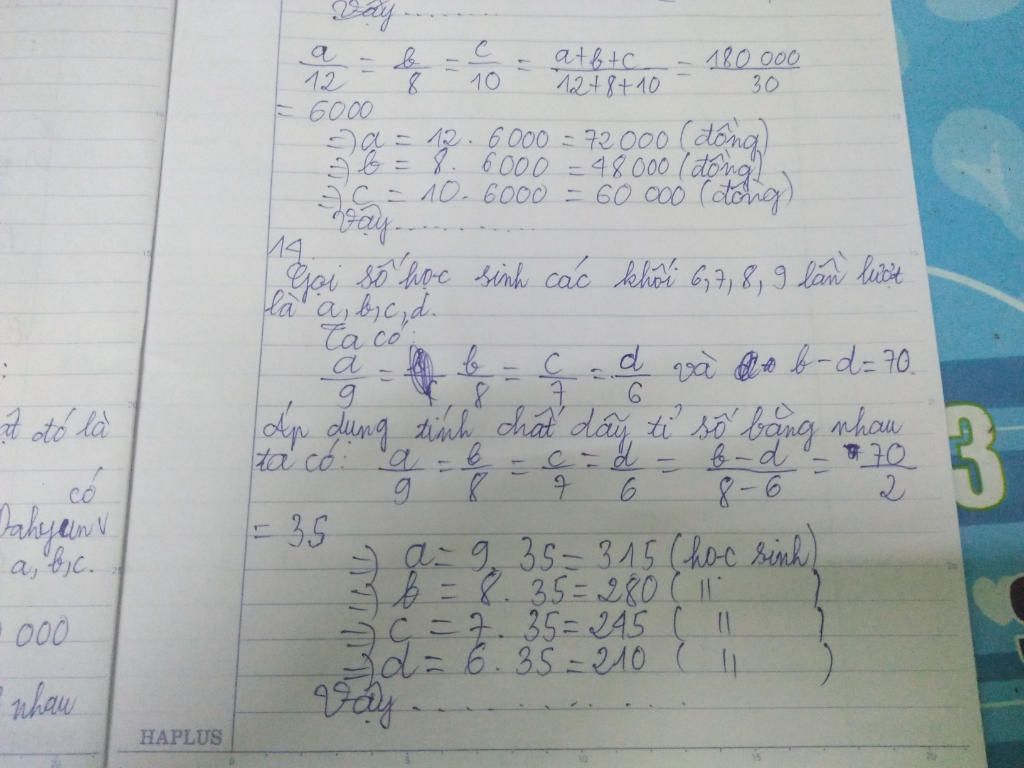 Vậy..............
a/12 = b/8 = c/10 = a+b+c/12+8+10 = 180 000/30
= 6000
=) a = 12. 6000 = 72000 (đồng)
=) b = 8. 6000 = 48000 (đồng)
=) c = 10. 6000 = 60 000 (đồng)
Vậy..............
14.
Gọi số học sinh các khối 6,7,8,9 lần lượt
là a,b,c,d.
Ta có:
a/9 = b/8 = c/7 = d/6 và b-d=70.
Áp dụng tính chất dãy tỉ số bằng nhau
ta có: a/9 = b/8 = c/7 = d/6 = b-d/8-6 = 70/2
= 35
=) a = 9. 35 = 315 (học sinh)
=) b = 8. 35 = 280 ( 11 )
=) c = 7. 35 = 245 ( 11 )
=) d = 6. 35 = 210 ( 11 )
Vậy..............
:
đó là
có
Dahyun v
a, b, c.
000
nhau
HAPLUS
0 5 10 15 20
3